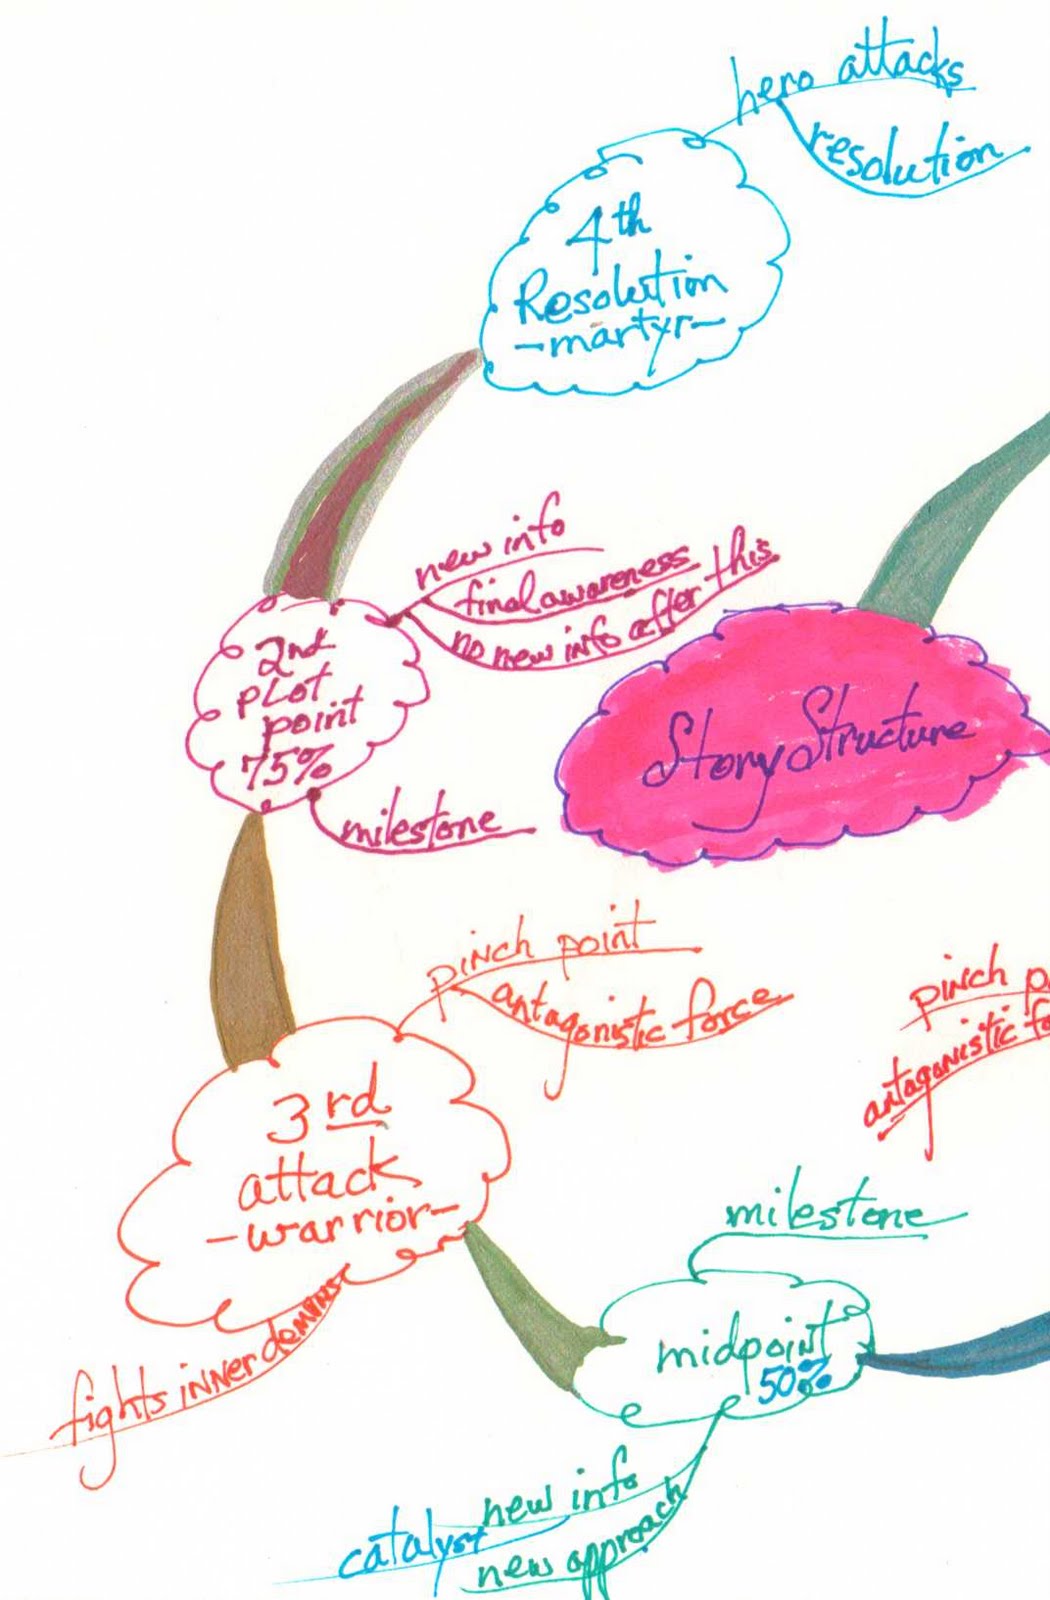 hero attacks
resolution
4th
Resolution
-martyr-
new info
final awareness
no new info after this
2nd
plot
point
75%
milestone
Story Structure
pinch point
antagonistic force
pinch
antagonistic
3rd
attack
-warrior-
fights inner demons
milestone
midpoint
50%
new info
catalyst
new approach